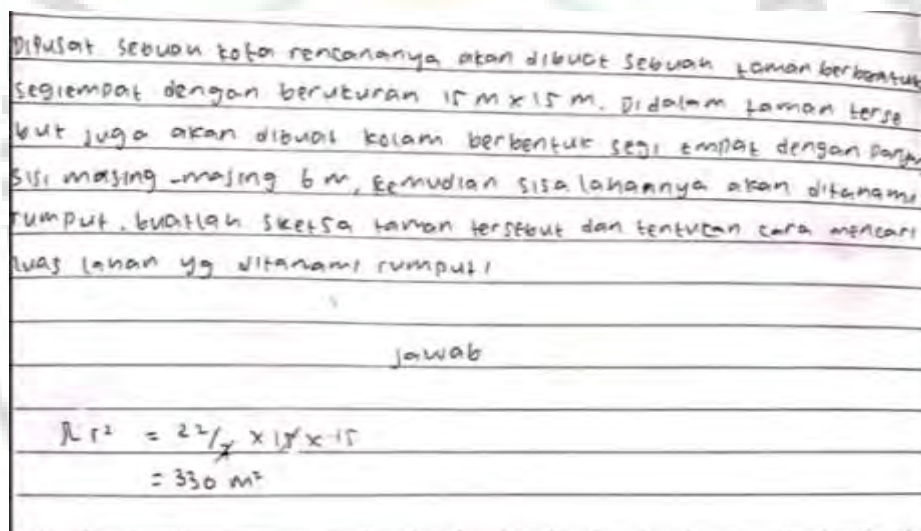 Dipusat sebuah kota rencananya akan dibuat sebuah taman berbentuk
segiempat dengan berukuran 15 m x 15 m. Didalam taman terse
but juga akan dibuat kolam berbentuk segi empat dengan
sisi masing-masing 6 m, kemudian sisa lahannya akan ditanami
rumput. buatlah sketsa taman tersebut dan tentukan cara mencari
luas lahan yg ditanami rumput!
jawab
π r² = 22/7 x 15 x 15
= 330 m²